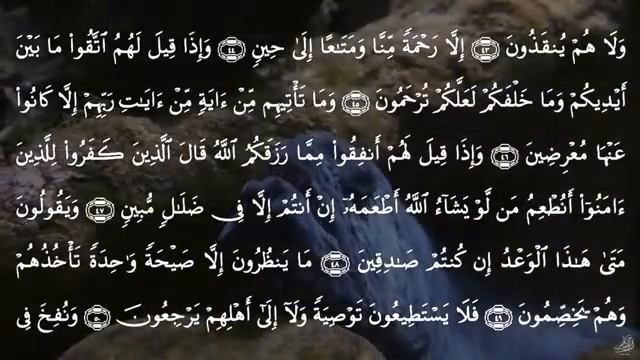 وَلَا هُمْ يُنقَذُونَ ٤٣ إِلَّا رَحْمَةً مِّنَّا وَمَتَٰعًا إِلَىٰ حِينٍ ٤٤ وَإِذَا قِيلَ لَهُمُ ٱتَّقُوا۟ مَا بَيْنَ
أَيْدِيكُمْ وَمَا خَلْفَكُمْ لَعَلَّكُمْ تُرْحَمُونَ ٤٥ وَمَا تَأْتِيهِم مِّنْ ءَايَةٍ مِّنْ ءَايَٰتِ رَبِّهِمْ إِلَّا كَانُوا۟
عَنْهَا مُعْرِضِينَ ٤٦ وَإِذَا قِيلَ لَهُمْ أَنفِقُوا۟ مِمَّا رَزَقَكُمُ ٱللَّهُ قَالَ ٱلَّذِينَ كَفَرُوا۟ لِلَّذِينَ
ءَامَنُوٓا۟ أَنُطْعِمُ مَن لَّوْ يَشَآءُ ٱللَّهُ أَطْعَمَهُۥٓ إِنْ أَنتُمْ إِلَّا فِى ضَلَٰلٍ مُّبِينٍ ٤٧ وَيَقُولُونَ
مَتَىٰ هَٰذَا ٱلْوَعْدُ إِن كُنتُمْ صَٰدِقِينَ ٤٨ مَا يَنظُرُونَ إِلَّا صَيْحَةً وَٰحِدَةً تَأْخُذُهُمْ
وَهُمْ يَخِصِّمُونَ ٤٩ فَلَا يَسْتَطِيعُونَ تَوْصِيَةً وَلَآ إِلَىٰٓ أَهْلِهِمْ يَرْجِعُونَ ٥٠ وَنُفِخَ فِى